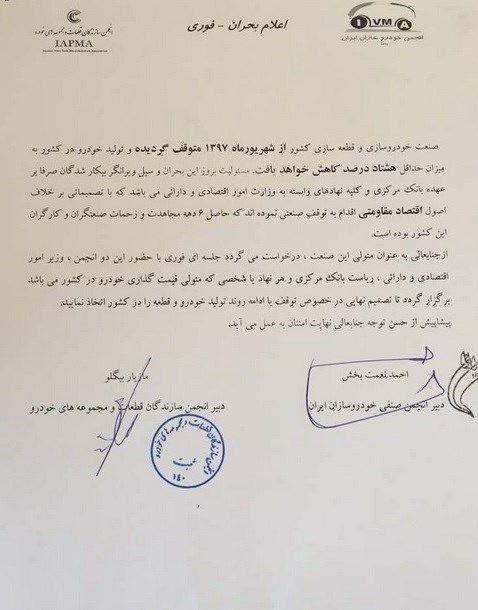 انجمن سازندگان قطعات و مجموعه های خودرو
IAPMA
اعلام بحران - فوری
IVMA
انجمن خودرو سازان ایران
صنعت خودروسازی و قطعه سازی کشور از شهریورماه ۱۳۹۷ متوقف گردیده و تولید خودرو در کشور به
میزان حداقل هشتاد درصد کاهش خواهد یافت. مسئولیت بروز این بحران و سیل ویرانگر بیکار شدگان صرفا بر
عهده بانک مرکزی و کلیه نهادهای وابسته به وزارت امور اقتصادی و دارائی می باشد که با تصمیماتی بر خلاف
اصول اقتصاد مقاومتی اقدام به توقف صنعتی نموده اند که حاصل ۶ دهه مجاهدت و زحمات صنعتگران و کارگران
این کشور بوده است.
ازجنابعالی به عنوان متولی این صنعت ، درخواست می گردد جلسه ای فوری با حضور این دو انجمن ، وزیر امور
اقتصادی و دارائی ، ریاست بانک مرکزی و هر نهاد یا شخصی که متولی قیمت گذاری خودرو در کشور می باشد
برگزار گردد تا تصمیم نهایی در خصوص توقف یا ادامه روند تولید خودرو و قطعه را در کشور اتخاذ نمایید.
پیشاپیش از حسن توجه جنابعالی نهایت امتنان به عمل می آید.
احمد نعمت بخش
دبیر انجمن صنفی خودروسازان ایران
مازیار بیگلو
دبیر انجمن سازندگان قطعات و مجموعه های خودرو
انجمن سازندگان قطعات و مجموعه های خودرو
ثبت
۱۴۰